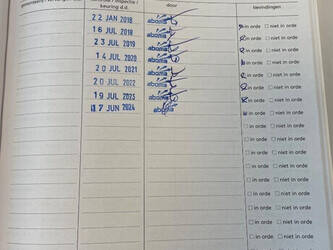 keuring d.d. door bevindingen
22 JAN 2018 aboma in orde niet in orde
16 JUL 2018 aboma in orde niet in orde
23 JUL 2019 aboma in orde niet in orde
14 JUL 2020 aboma in orde niet in orde
20 JUL 2021 aboma in orde niet in orde
20 JUL 2022 aboma in orde niet in orde
19 JUL 2023 aboma in orde niet in orde
17 JUN 2024 aboma in orde niet in orde
in orde niet in orde
in orde niet in orde
in orde niet in orde
in orde niet in orde
in orde niet in orde
in orde niet in orde
in orde niet in orde
in orde niet in orde
in orde niet in orde